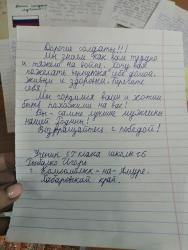 Дорогие солдаты!!!
Мы знаем как вам трудно
и тяжело на войне. Хочу вам
пожелать вернуться домой
живым и здоровым. Берегите
себя.
Мы гордимся вами и хотим
быть похожими на вас!
Вы - самые лучшие мужчины
нашей Родины!
Возвращайтесь с победой!
Ученик 5 класса школы
Игорь
г Комсомольск - на - Амуре.
Хабаровский край.